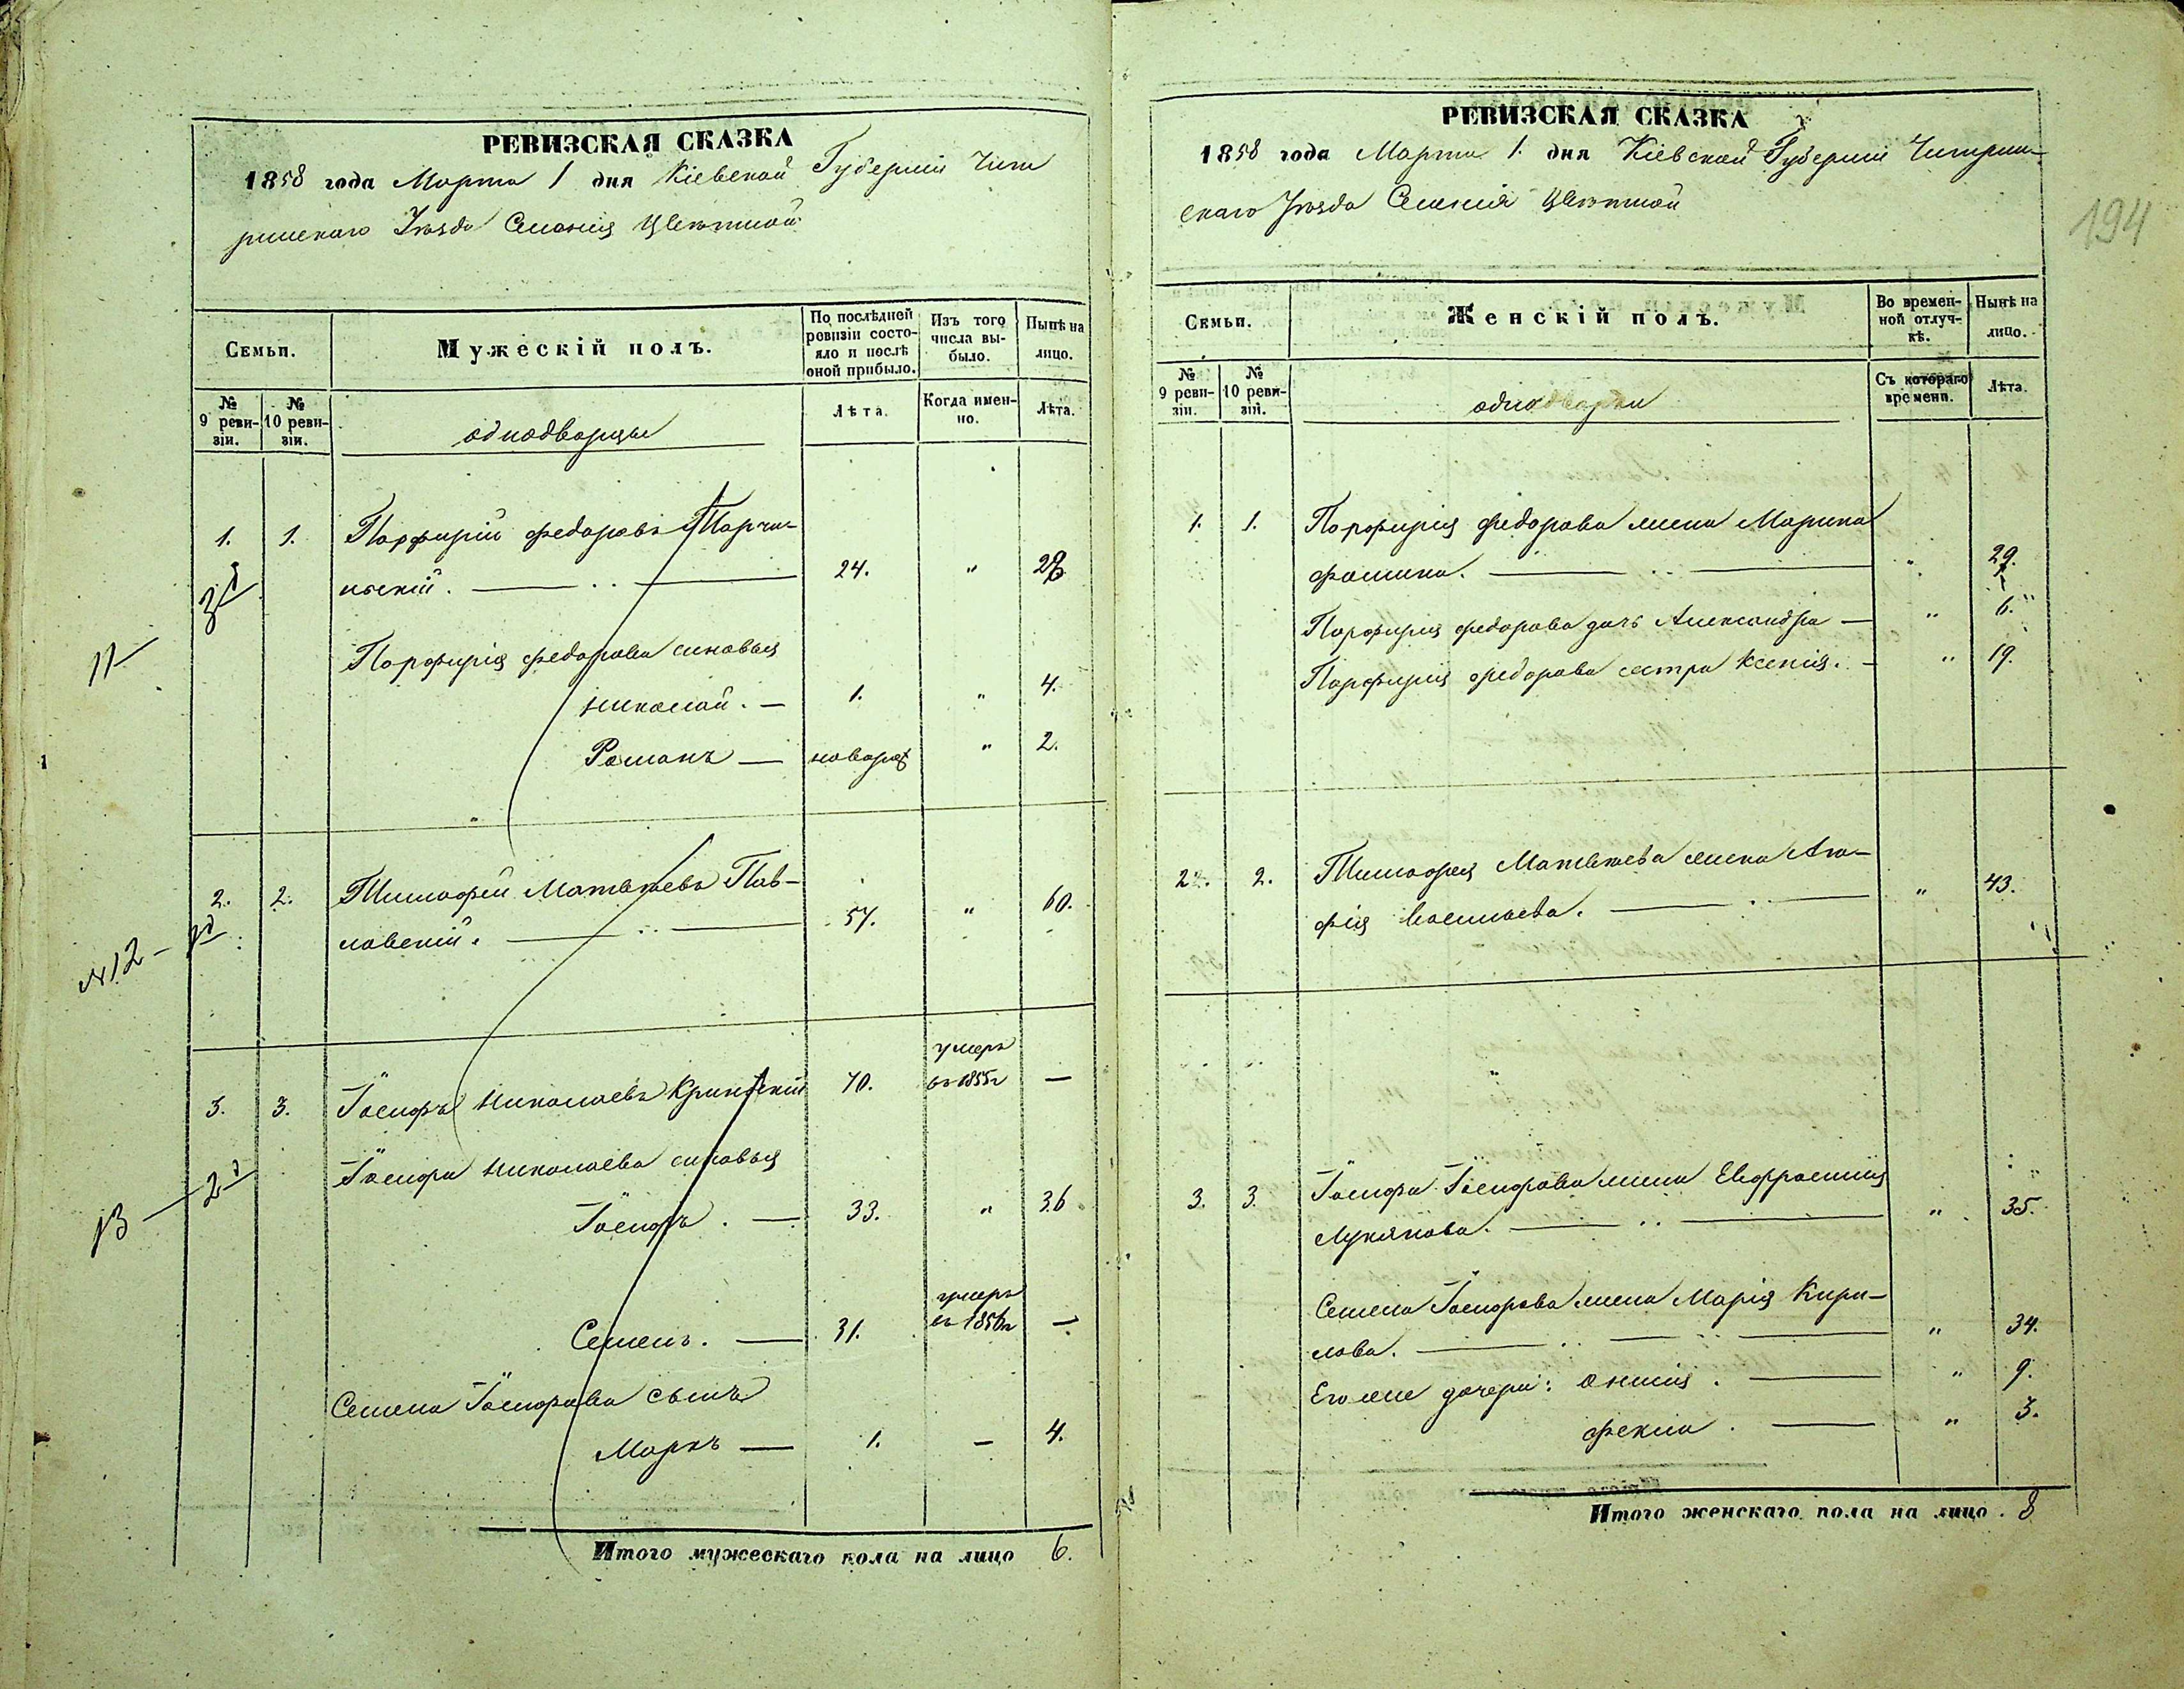 РЕВИЗСКАЯ СКАЗКА
1858 года Марта 1 дня Кіевской Губерніи Чиги
ринскаго Уѣзда Селенія Цвѣтной
Семьи.
Мужескій полъ.
По послѣдней ревизіи состояло и послѣ оной прибыло.
Изъ того числа выбыло.
Нынѣ на лицо.
№ 9 ревизіи.
№ 10 ревизіи.
однодворцы
Лѣта.
Когда именно.
Лѣта.
1. 1. Порфирій Федоровъ
нскій. 24. " 28
11
Порфирія Федорова сыновья
Николай. 1. " 4.
Романъ новорож " 2.
2. 2. Тимофей Матвѣевъ Пав-
ловскій. 57. " 60.
№12
умеръ
3. 3. Іосифъ Николаевъ Кринскій 70. въ 1855г —
Іосифа Николаева сыновья
13 2
Іосифъ. 33. " 36
умеръ
Семенъ. 31. въ 1856г —
Семена Іосифова сынъ
Маркъ 1. — 4.
Итого мужескаго пола на лицо 6.
РЕВИЗСКАЯ СКАЗКА
1858 года Марта 1. дня Кіевской Губерніи Чигирин-
скаго Уѣзда Селенія Цвѣтной
194
Семьи.
Женскій полъ.
Во временной отлучкѣ.
Нынѣ на лицо.
№ 9 ревизіи.
№ 10 ревизіи.
однодворки
Съ котораго времени.
Лѣта.
1. 1. Порфирія Федорова жена Марина
Фомина. " 29.
Порфирія Федорова дочь Александра " 6.
Порфирія Федорова сестра Ксенія. " 19.
2. 2. Тимофея Матвѣева жена Ага-
фія Васильева. " 43.
3. 3. Іосифа Іосифова жена Евфросинія
Лукянова. " 35.
Семена Іосифова жена Марія Кири-
лова. " 34.
Его же дочери: Анисія. " 9.
Фекла. " 3.
Итого женскаго пола на лицо. 8